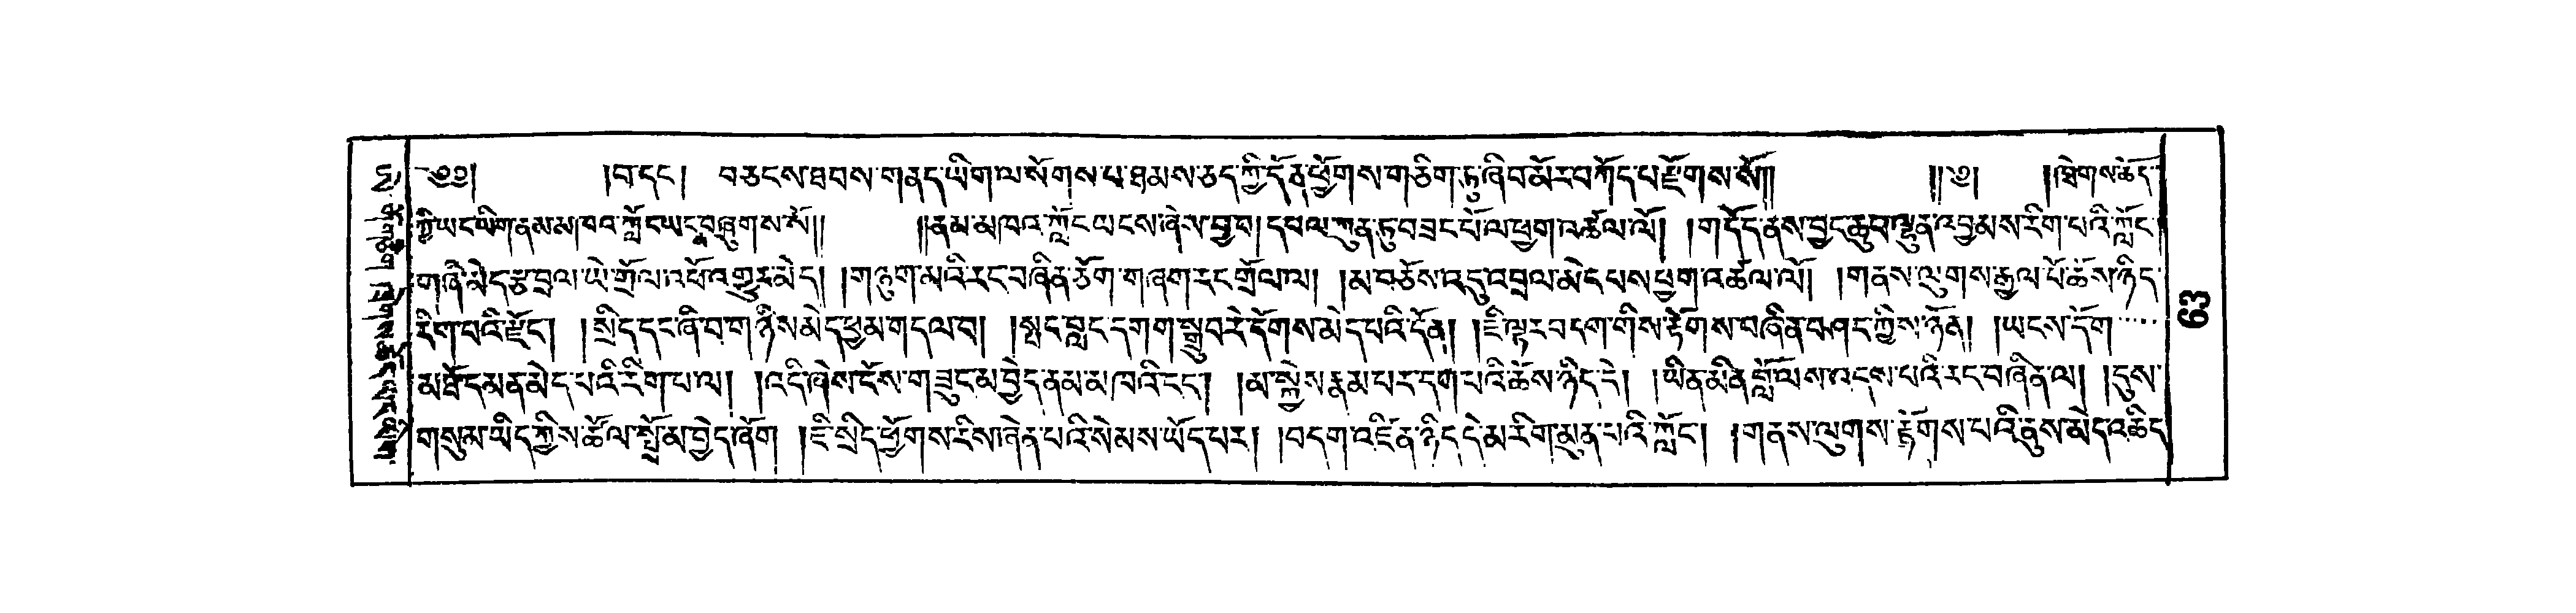 ༄༅། །བ་དང༌། བཅངས་ཐབས་གནད་ཡིག་ལ་སོགས་པ་ཐམས་ཅད་ཀྱི་དོན་ཕྱོགས་གཅིག་ཏུ་ཞིབ་མོར་བཀོད་པ་རྫོགས་སོ།། །།༄། །ཁྲེགས་ཆོད་
ཀྱི་ཡང་ཡིག་ནམ་མཁའ་ཀློང་ཡངས་བཞུགས་སོ།། །།ནམ་མཁའ་ཀློང་ཡངས་ཞེས་བྱ་བ། དཔལ་ཀུན་ཏུ་བཟང་པོ་ལ་ཕྱག་འཚལ་ལོ། །གདོད་ནས་བྱང་ཆུབ་ལྷུན་འབྱམས་རིག་པའི་ཀློང་
གཞི་མེད་རྩ་བྲལ་ཡེ་གྲོལ་འཕོ་འགྱུར་མེད། །གཉུག་མའི་རང་བཞིན་ཅོག་གཞག་རང་གྲོལ་ལ། །མ་བཅོས་འདུ་འབྲལ་མེད་པས་ཕྱག་འཚལ་ལོ། །གནས་ལུགས་རྒྱལ་པོ་ཆོས་ཉིད་
རིག་པའི་རྫོང༌། །སྲིད་དང་ཞི་བ་གཉིས་མེད་ཕྱམ་གདལ་བ། །སྤང་བླང་དགག་སྒྲུབ་རེ་དོགས་མེད་པའི་དོན། །ཇི་ལྟར་བདག་གིས་རྟོགས་བཞིན་བཤད་ཀྱིས་ཉོན། །ཡངས་དོག
མཐོ་དམན་མེད་པའི་རིག་པ་ལ། །འདི་ཞེས་ངོས་གཟུང་མ་བྱེད་ནམ་མཁའི་ངང༌། །མ་སྐྱེས་རྣམ་པར་དག་པའི་ཆོས་ཉིད་དེ། །ཡིན་མིན་བློ་ལས་འདས་པའི་རང་བཞིན་ལ། །དུས་
གསུམ་ཡིད་ཀྱིས་ཚོལ་སྒྲོམ་བྱེད་ཞོག །ཇི་སྲིད་ཕྱོགས་རིས་ཞེན་པའི་སེམས་ཡོད་པར། །བདག་འཛིན་ཉིད་དེ་མ་རིག་མུན་པའི་ཀློང༌། །གནས་ལུགས་རྟོགས་པའི་ནུས་མེད་འཆིང